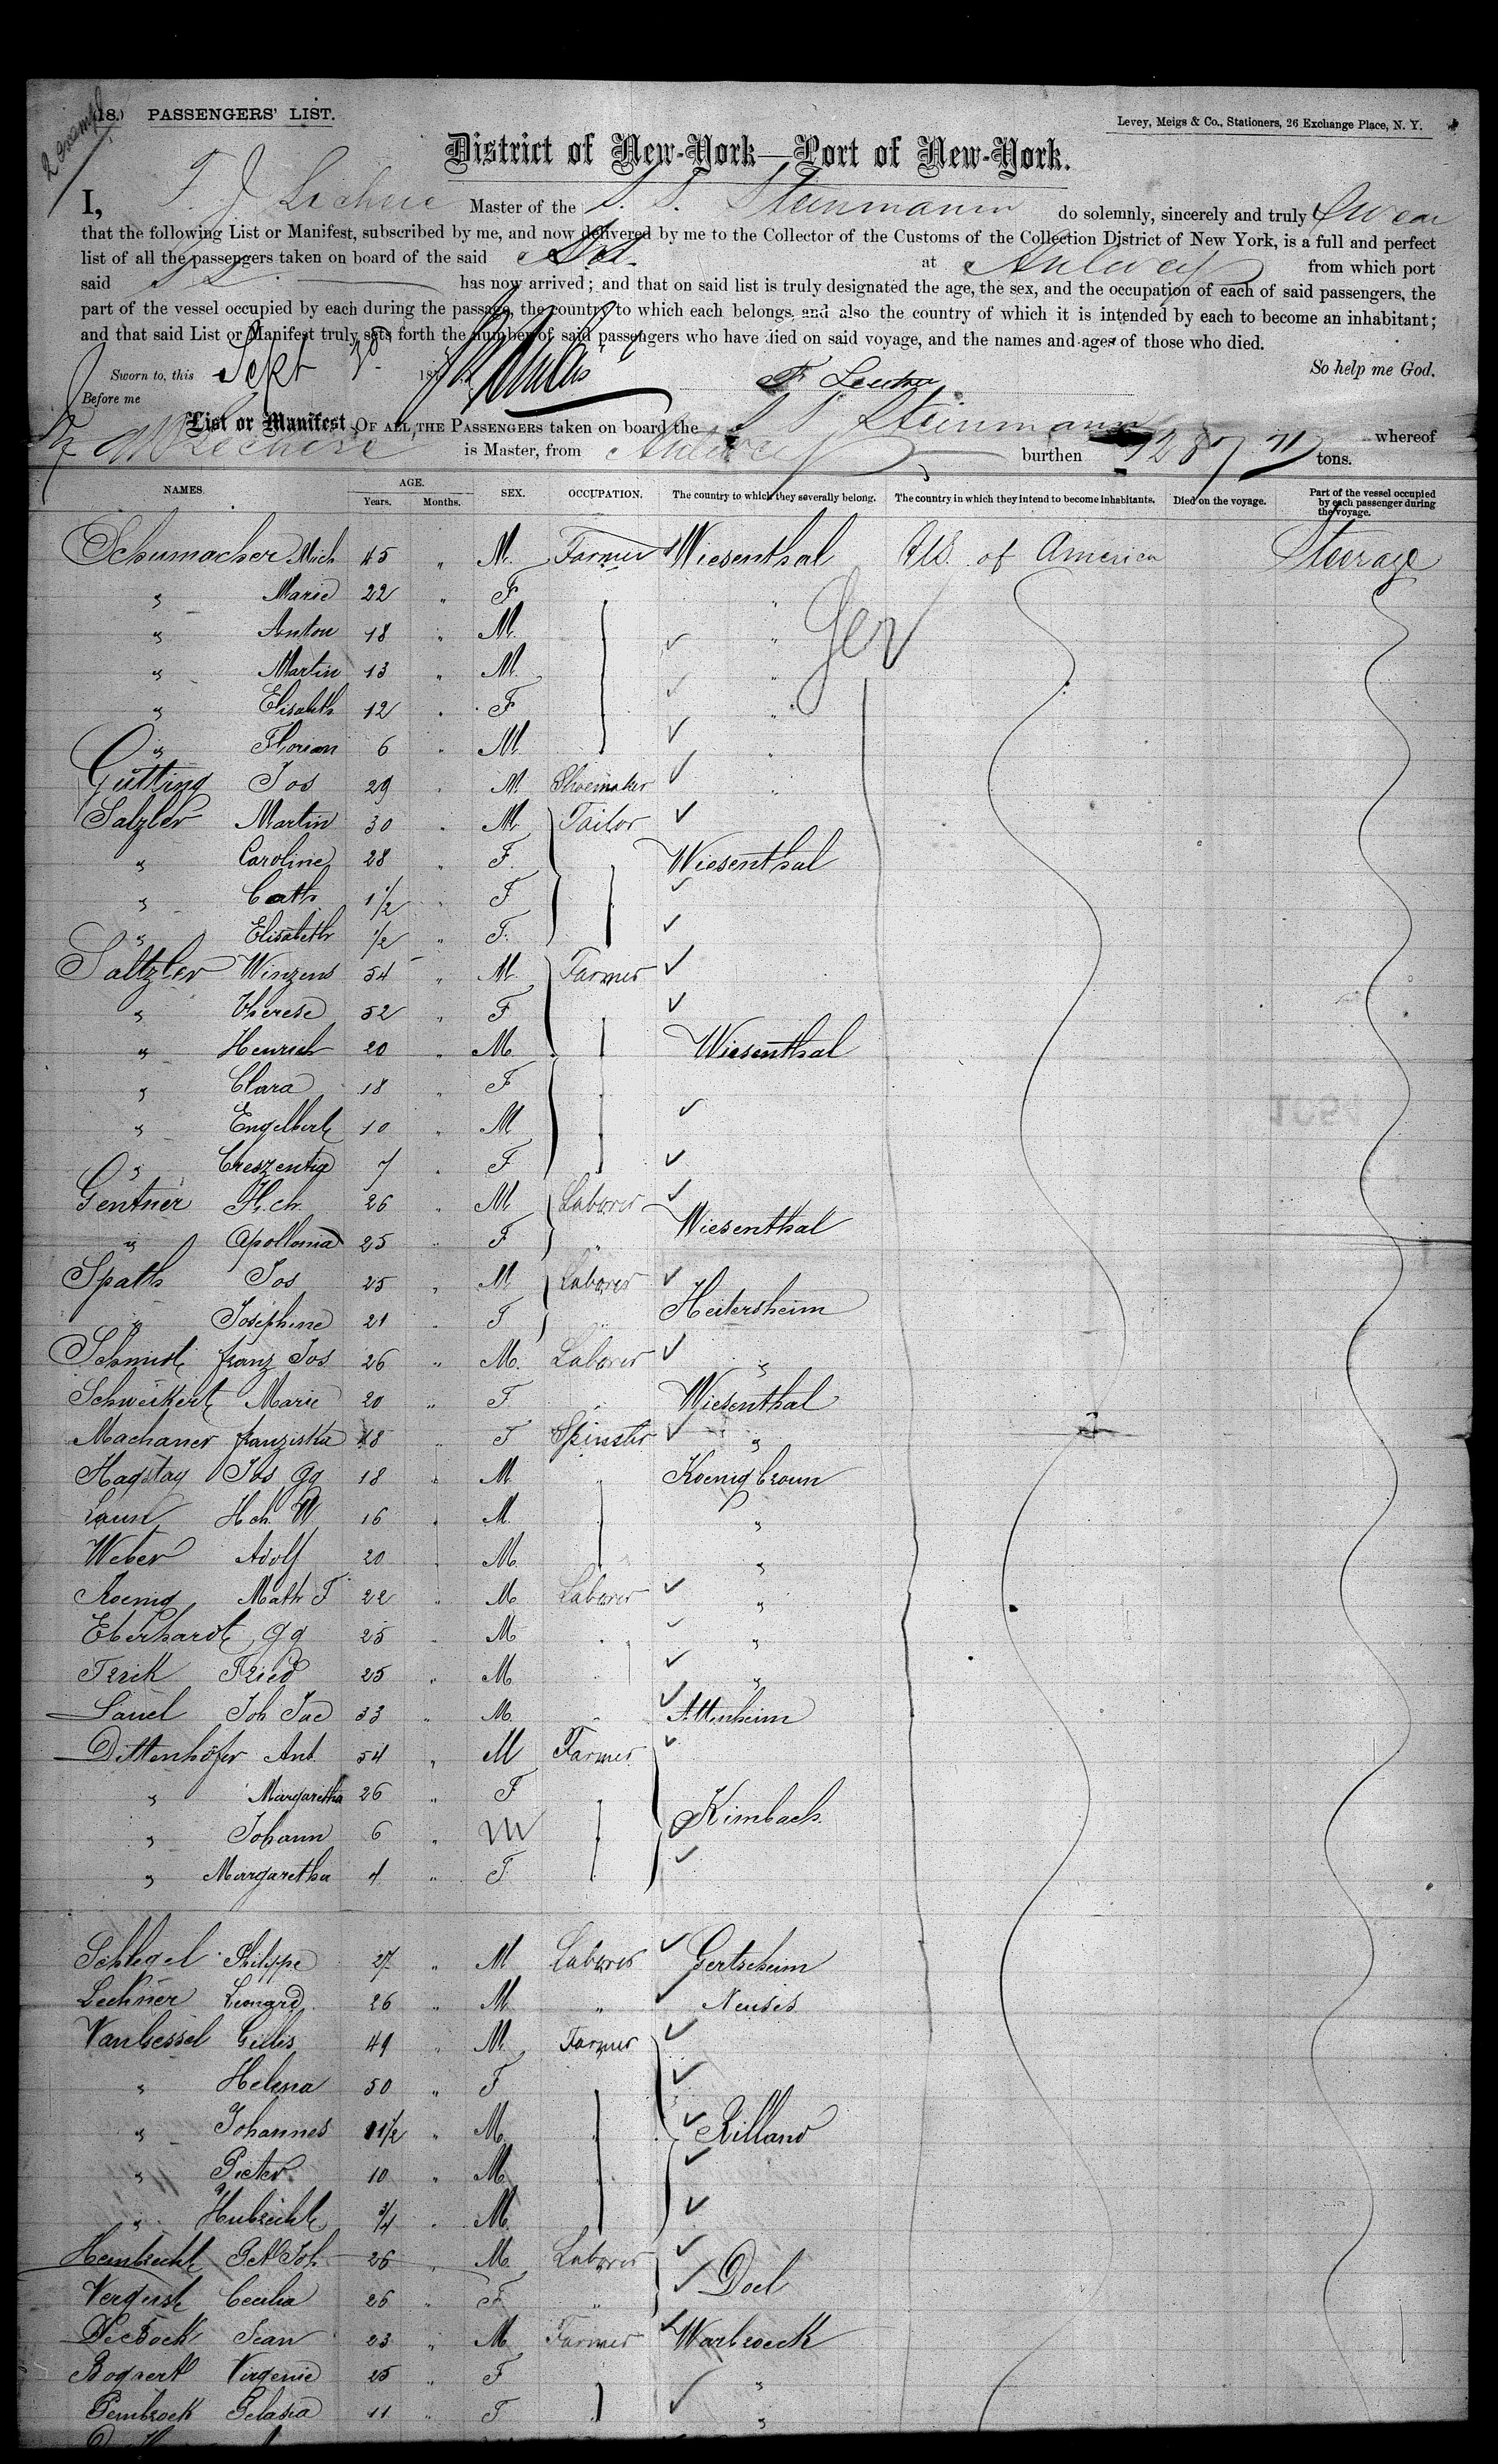 (18.) PASSENGERS' LIST.
Levey, Meigs & Co., Stationers, 26 Exchange Place, N. Y.
District of New-York—Port of New-York.
I, Master of the S. S. Steinmann do solemnly, sincerely and truly Swear
that the following List or Manifest, subscribed by me, and now delivered by me to the Collector of the Customs of the Collection District of New York, is a full and perfect
list of all the passengers taken on board of the said at from which port
said has now arrived; and that on said list is truly designated the age, the sex, and the occupation of each of said passengers, the
part of the vessel occupied by each during the passage, the country to which each belongs, and also the country of which it is intended by each to become an inhabitant;
and that said List or Manifest truly sets forth the number of said passengers who have died on said voyage, and the names and ages of those who died.
So help me God.
Sworn to, this Sept 187
Before me
List or Manifest OF ALL THE PASSENGERS taken on board the S S Steinmann whereof
is Master, from burthen 1287 71 tons.
NAMES. AGE. Years. Months. SEX. OCCUPATION. The country to which they severally belong. The country in which they intend to become inhabitants. Died on the voyage. Part of the vessel occupied by each passenger during the voyage.
Schumacher Mich 45 " M. Farmer Wiesenthal U.S. of America Steerage
" Marie 22 " F "
Ger
" Anton 18 " M. "
" Martin 13 " M. "
" Elisabeth 12 " F "
" Florian 6 " M. "
Gütting Jos 29 " M. Shoemaker "
Salzler Martin 30 " M Tailor
" Caroline 28 " F. Wiesenthal
" Cath 1 1/2 " F
" Elisabeth 1/2 " F.
Saltzler Winzens 54 " M. Farmer
" Therese 52 " F
" Henrich 20 " M. Wiesenthal
" Clara 18 " F
" Engelbert 10 " M
" Creszentia 7 " F
Gentner H.ch. 26 " M Laborer
" Apollonia 25 " F " Wiesenthal
Spath Jos 25 " M Laborer
" Josephine 21 " F " Heitersheim
Schmidt franz Jos 26 " M. Laborer "
Schweikert Marie 20 " F " Wiesenthal
Machaner franziska 18 " F Spinster "
Hagstay Jos Gg 18 " M. " Koenigbroun
Laun Hch. W 16 " M. "
Weber Adolf 20 " M. "
Koenig Math F 22 " M Laborer "
Eberhardt Gg 25 " M "
Frick Fried 25 " M "
Sauel Joh Jac 33 " M. " Attenheim
Dittenhöfer Ant. 54 " M Farmer
" Margaretha 26 " F
" Johann 6 " M Kimbach
" Margaretha 4 " F
Schlegel Philippe 27 " M Laborer Gertscheim
Lechner Leonard 26 " M " Neuses
Van Gessel Gillis 49 " M. Farmer
" Helena 50 " F
" Johannes 11 1/2 " M. Rilland
" Pieter 10 " M.
" Hubrecht 3/4 " M.
Hembrecht Pet Joh 26 " M Laborer
Vergust Cecilia 26 " F " Doel
De Bock Jean 23 " M Farmer Warbroeck
Bogaert Virgenie 25 " F "
Pembroek Pelasia 11 " F "